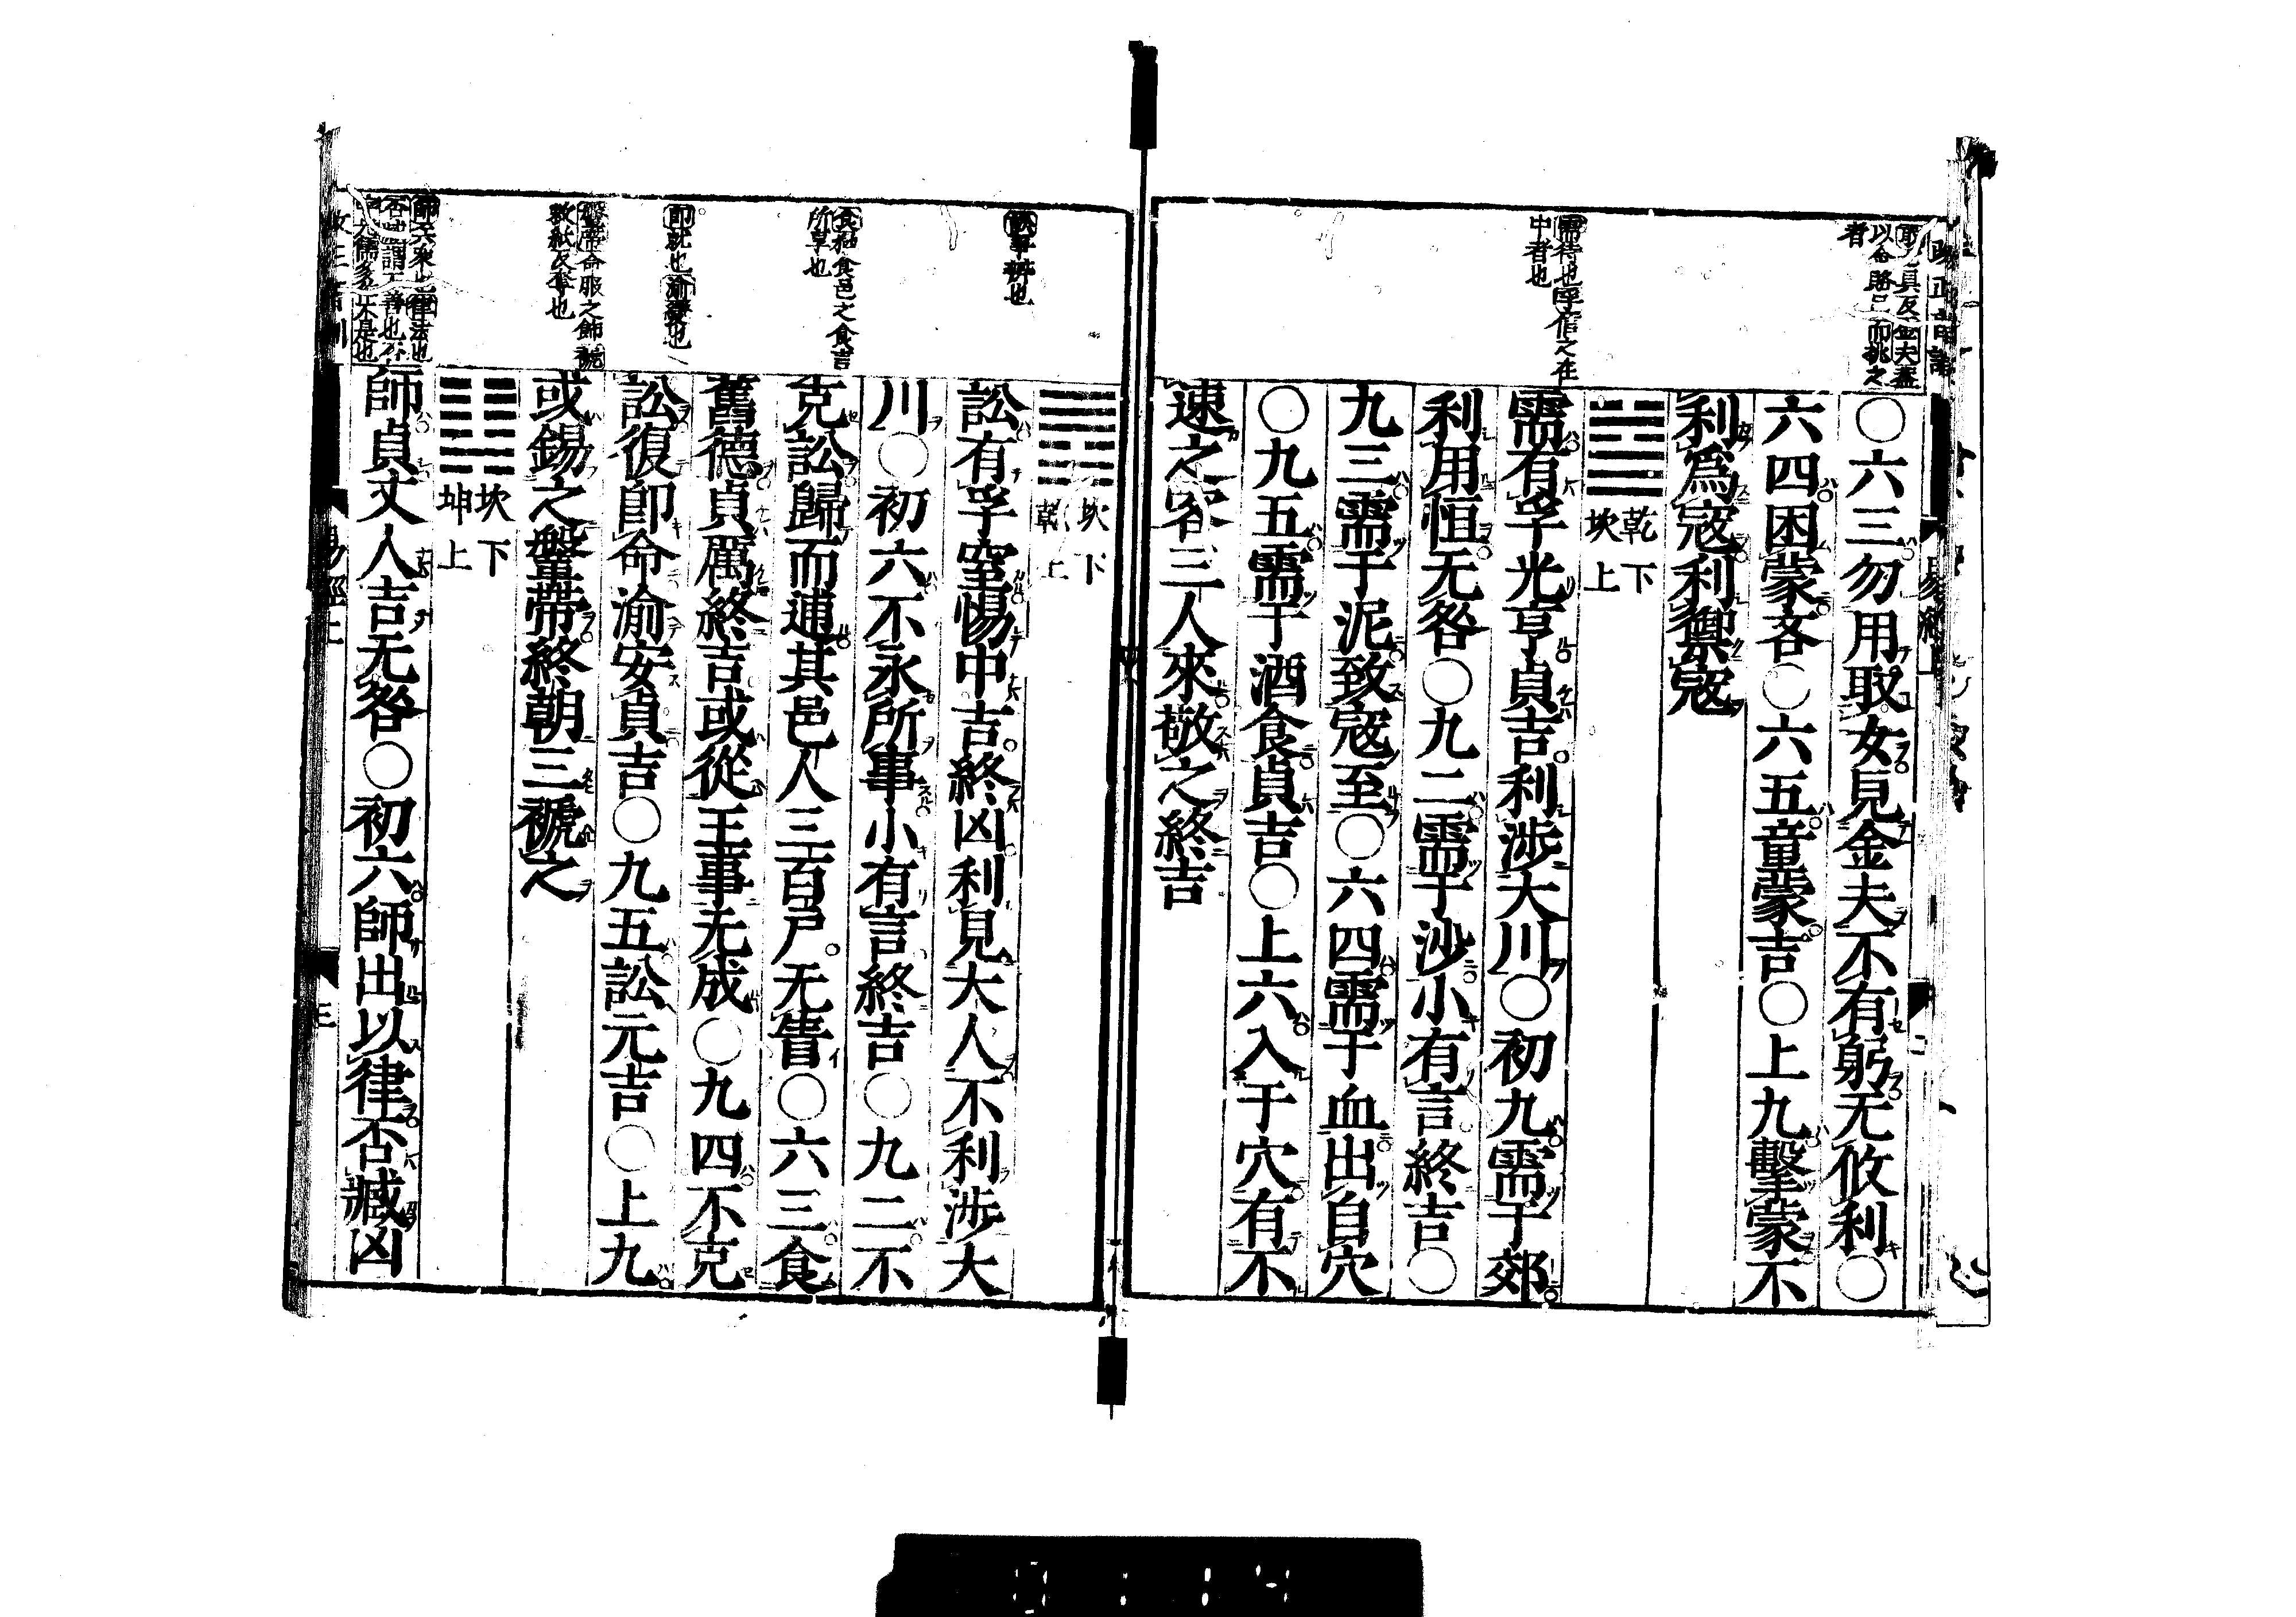 ○六三勿用取女見金夫不有躬无攸利○
六四困蒙吝○六五童蒙吉○上九擊蒙不
利爲寇利禦寇
乾下
坎上
需有孚光亨貞吉利涉大川○初九需于郊
利用恒无咎○九二需于沙小有言終吉○
九三需于泥致寇至○六四需于血出自穴
○九五需于酒食貞吉○上六入于穴有不
速之客三人來敬之終吉
需待也孚信之在
中者也
以金賂己而挑之
者
坎下
乾上
訟有孚窒惕中吉終凶利見大人不利涉大
川○初六不永所事小有言終吉○九二不
克訟歸而逋其邑人三百戶无眚○六三食
舊德貞厲終吉或從王事无成○九四不克
訟復卽命渝安貞吉○九五訟元吉○上九
或錫之鞶帶終朝三褫之
坎下
坤上
師貞丈人吉无咎○初六師出以律否臧凶
食邑之食吉
所享也
卽就也渝變也
鞶帶命服之飾褫
敕紙反奪也
易經上
三